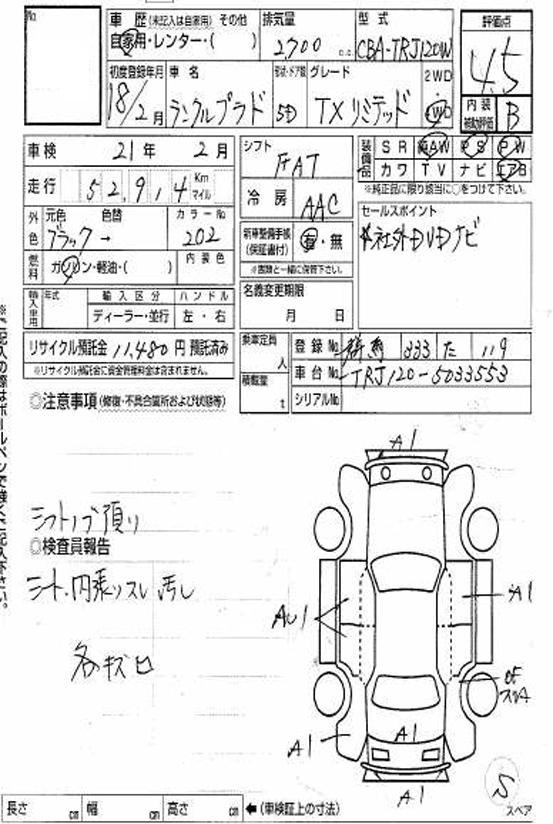 No
車歴 (未記入は自家用) その他
自家用・レンター・( )
排気量
2,700 c.c.
型式
CBA-TRJ120W
評価点
4.5
初度登録年月
18/2月
車名
ランクルプラド
形状・ドア数
5D
グレード
TXリミテッド
2WD
4WD
内装
補助評価
B
車検 21年 2月
走行 52,9,4 Km
マイル
外色
元色 色替 カラーNo
ブラック→ 202
燃料
ガソリン・軽油・( )
内装色
輸入車用
年式 輸入区分 ハンドル
ディーラー・並行 左・右
リサイクル預託金 11,480円 預託済み
※リサイクル預託金に資金管理料金は含まれません。
シフト
FAT
冷房
AAC
新車整備手帳
(保証書付)
有・無
※書類と一緒に保管下さい。
名義変更期限
月 日
装備品
SR AW PS PW
カワ TV ナビ エアB
※純正品に限り該当に○をつけて下さい。
セールスポイント
社外DVDナビ
乗車定員
人
積載量
t
登録No 群馬 333 た 119
車台No TRJ120-5033553
シリアルNo
◎注意事項 (修復・不具合箇所および状態等)
シフトノブ頂り
◎検査員報告
シート.内張りスレ 汚し
各キズ
A1
A1
AU1
A1
A1
A1
A1
S
スペア
長さ cm 幅 cm 高さ cm ←(車検証上の寸法)